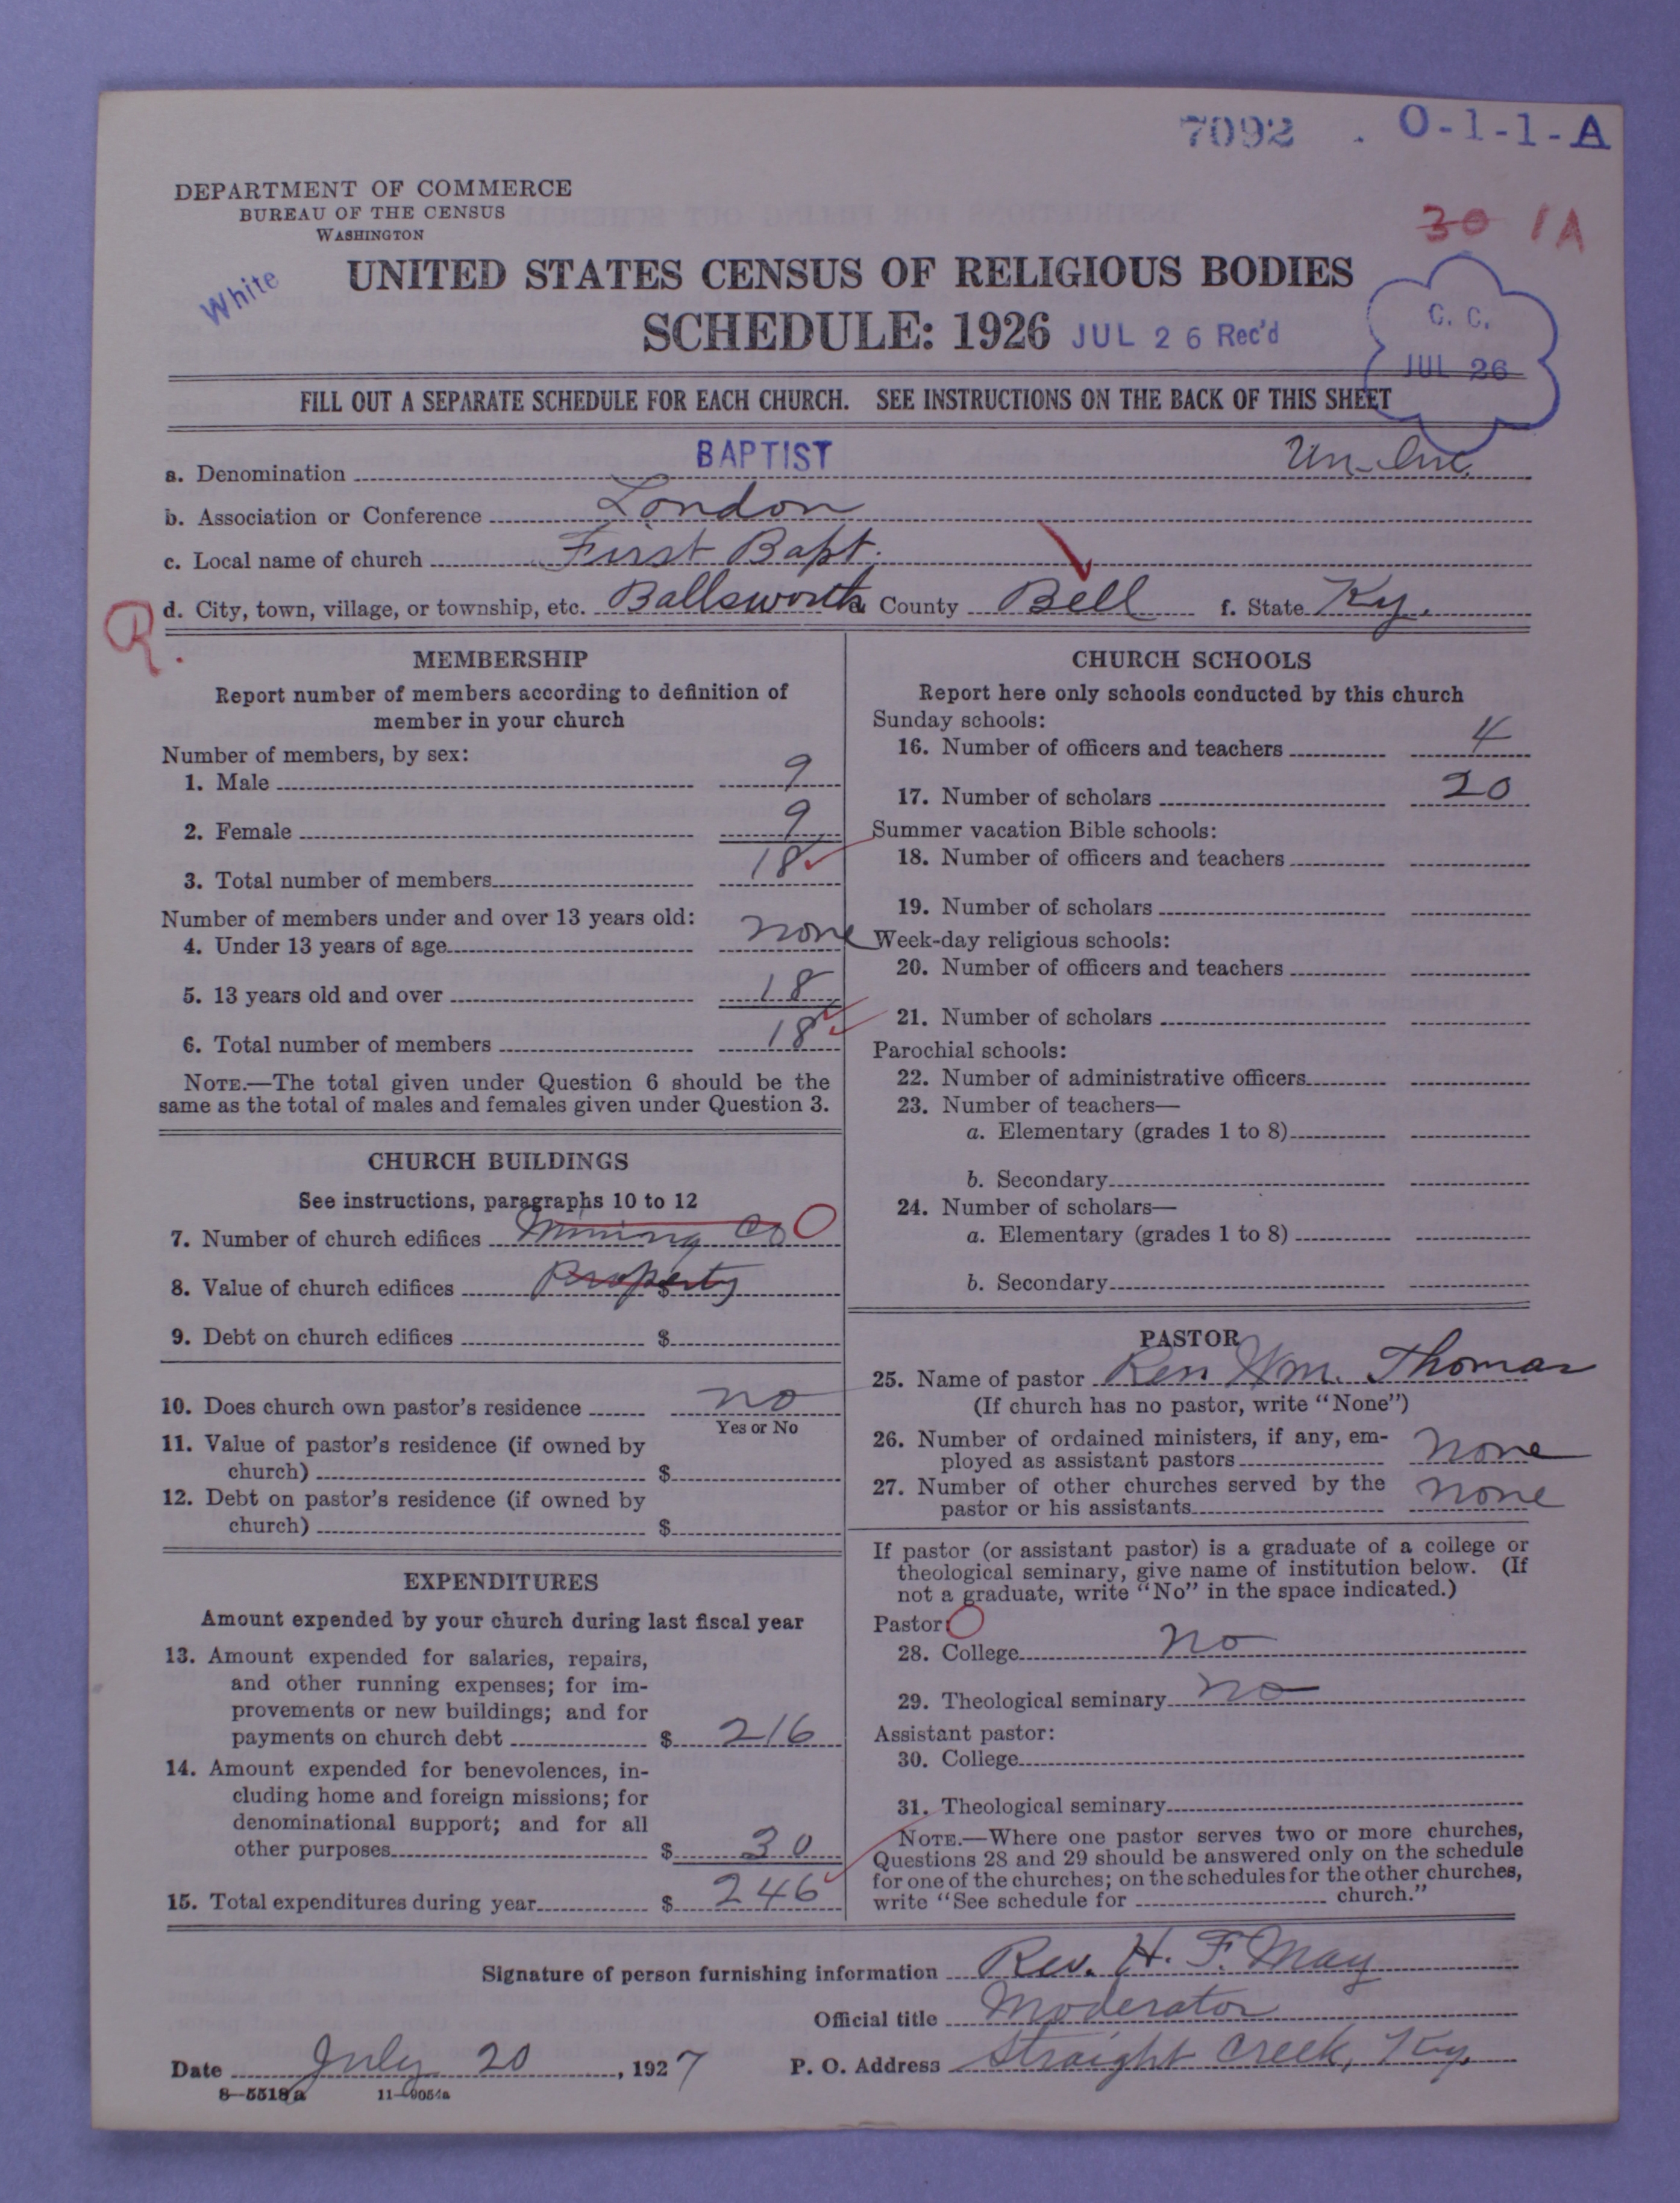 7092 . O-1-1-A
30 1A
DEPARTMENT OF COMMERCE
BUREAU OF THE CENSUS
WASHINGTON
White
UNITED STATES CENSUS OF RELIGIOUS BODIES
SCHEDULE: 1926 JUL 26 Rec'd
C. C.
JUL 26
FILL OUT A SEPARATE SCHEDULE FOR EACH CHURCH. SEE INSTRUCTIONS ON THE BACK OF THIS SHEET
a. Denomination BAPTIST Un-Inc.
b. Association or Conference London
c. Local name of church First Bapt.
d. City, town, village, or township, etc. Ballsworth County Bell f. State Ky.
R.
MEMBERSHIP
Report number of members according to definition of
member in your church
Number of members, by sex:
1. Male 9
2. Female 9
3. Total number of members 18
Number of members under and over 13 years old:
4. Under 13 years of age none
5. 13 years old and over 18
6. Total number of members 18
NOTE.—The total given under Question 6 should be the
same as the total of males and females given under Question 3.
CHURCH BUILDINGS
See instructions, paragraphs 10 to 12
7. Number of church edifices Mining Co O
8. Value of church edifices $ Property
9. Debt on church edifices $
10. Does church own pastor's residence no
Yes or No
11. Value of pastor's residence (if owned by
church) $
12. Debt on pastor's residence (if owned by
church) $
EXPENDITURES
Amount expended by your church during last fiscal year
13. Amount expended for salaries, repairs,
and other running expenses; for im-
provements or new buildings; and for
payments on church debt $ 216
14. Amount expended for benevolences, in-
cluding home and foreign missions; for
denominational support; and for all
other purposes $ 30
15. Total expenditures during year $ 246
CHURCH SCHOOLS
Report here only schools conducted by this church
Sunday schools:
16. Number of officers and teachers 4
17. Number of scholars 20
Summer vacation Bible schools:
18. Number of officers and teachers
19. Number of scholars
Week-day religious schools:
20. Number of officers and teachers
21. Number of scholars
Parochial schools:
22. Number of administrative officers
23. Number of teachers—
a. Elementary (grades 1 to 8)
b. Secondary
24. Number of scholars—
a. Elementary (grades 1 to 8)
b. Secondary
PASTOR
25. Name of pastor Rev. Wm. Thomas
(If church has no pastor, write "None")
26. Number of ordained ministers, if any, em-
ployed as assistant pastors none
27. Number of other churches served by the
pastor or his assistants none
If pastor (or assistant pastor) is a graduate of a college or
theological seminary, give name of institution below. (If
not a graduate, write "No" in the space indicated.)
Pastor: O
28. College no
29. Theological seminary no
Assistant pastor:
30. College
31. Theological seminary
NOTE.—Where one pastor serves two or more churches,
Questions 28 and 29 should be answered only on the schedule
for one of the churches; on the schedules for the other churches,
write "See schedule for church."
Signature of person furnishing information Rev. H. F. May
Official title Moderator
Date July 20, 1927 P. O. Address Straight Creek, Ky.
8—5518a 11—9054a